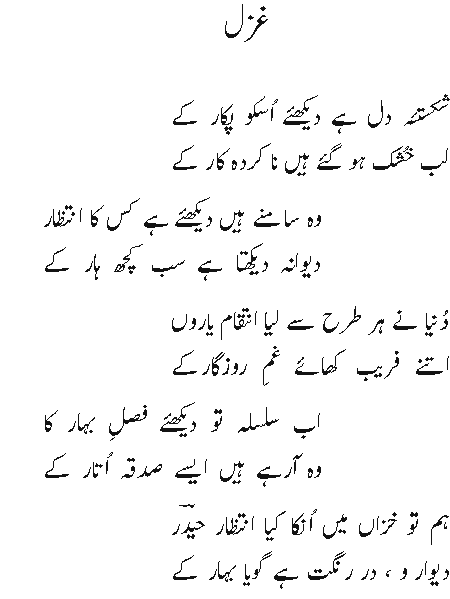 غزل
شکستہ دل ہے دیکھئے اُسکو پکار کے
لب خُشک ہو گئے ہیں نا کردہ کار کے
وہ سامنے ہیں دیکھئے ہے کس کا انتظار
دیوانہ دیکھتا ہے سب کچھ ہار کے
دُنیا نے ہر طرح سے لیا انتقام یاروں
اتنے فریب کھائے غمِ روزگار کے
اب سلسلہ تو دیکھئے فصلِ بہار کا
وہ آرہے ہیں ایسے صدقہ اُتار کے
ہم تو خزاں میں اُنکا کیا انتظار حیدؔر
دیوار و ، در رنگت ہے گویا بہار کے